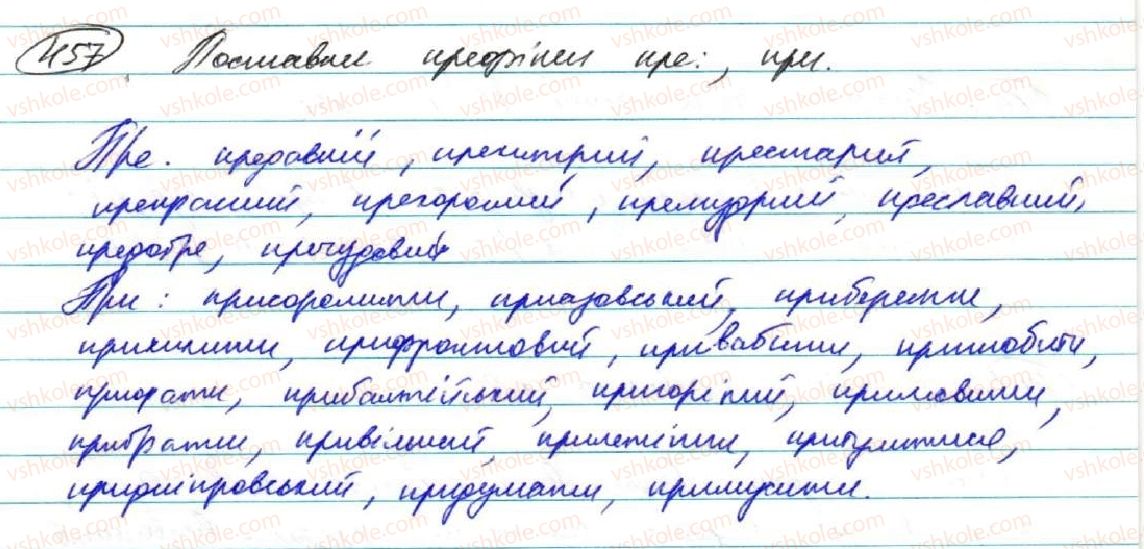 457 Поставили префікси пре:, при.
Пре. предовгий, прехитрий, престарий,
прекрасний, прегоромий, премудрий, преславний,
предобре, пречудовий
При: присоромити, приазовський, приберегти,
прихилити, прифронтовий, привабити, пришвабити,
приорати, прибалтійський, пригорілий, примовити,
прибрати, привільний, прилетіти, притулитися,
придніпровський, придумати, примусити.